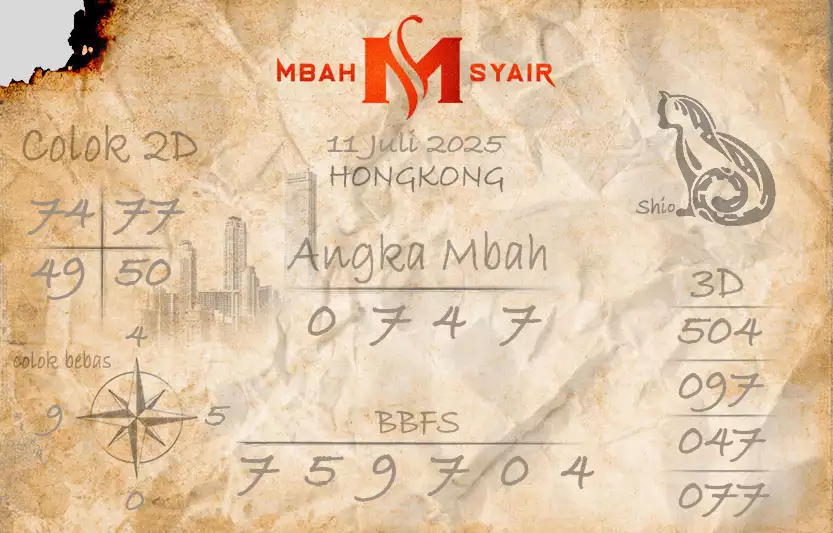 MBAH M SYAIR
11 Juli 2025
HONGKONG
Colok 2D
74 77
49 50
Shio
Angka Mbah
0 7 4 7
3D
504
097
047
077
4
colok bebas
9 5
0
BBFS
7 5 9 7 0 4